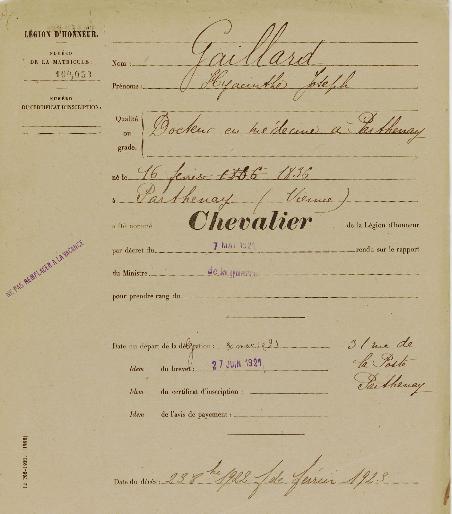 LÉGION D'HONNEUR.
NUMÉRO
DE LA MATRICULE:
NUMÉRO
DU CERTIFICAT D'INSCRIPTION:
Nom: Gaillard
Prénoms: Hyacinthe Joseph
Qualité
ou
grade.
Docteur en médecine à Parthenay
né le 16 1836
à Parthenay (Vienne)
a été nommé Chevalier de la Légion d'honneur
par décret du 7 MAI 1921 rendu sur le rapport
du Ministre de la guerre
pour prendre rang du
Date du départ de la délégation:
Idem du brevet: 27 JUIN 1921
Idem du certificat d'inscription:
Idem de l'avis de paiement:
31 rue de
la Poste
Parthenay
NE PAS REMPLACER A LA VACANCE
Date du décès: 23 8bre 1922 février 1923